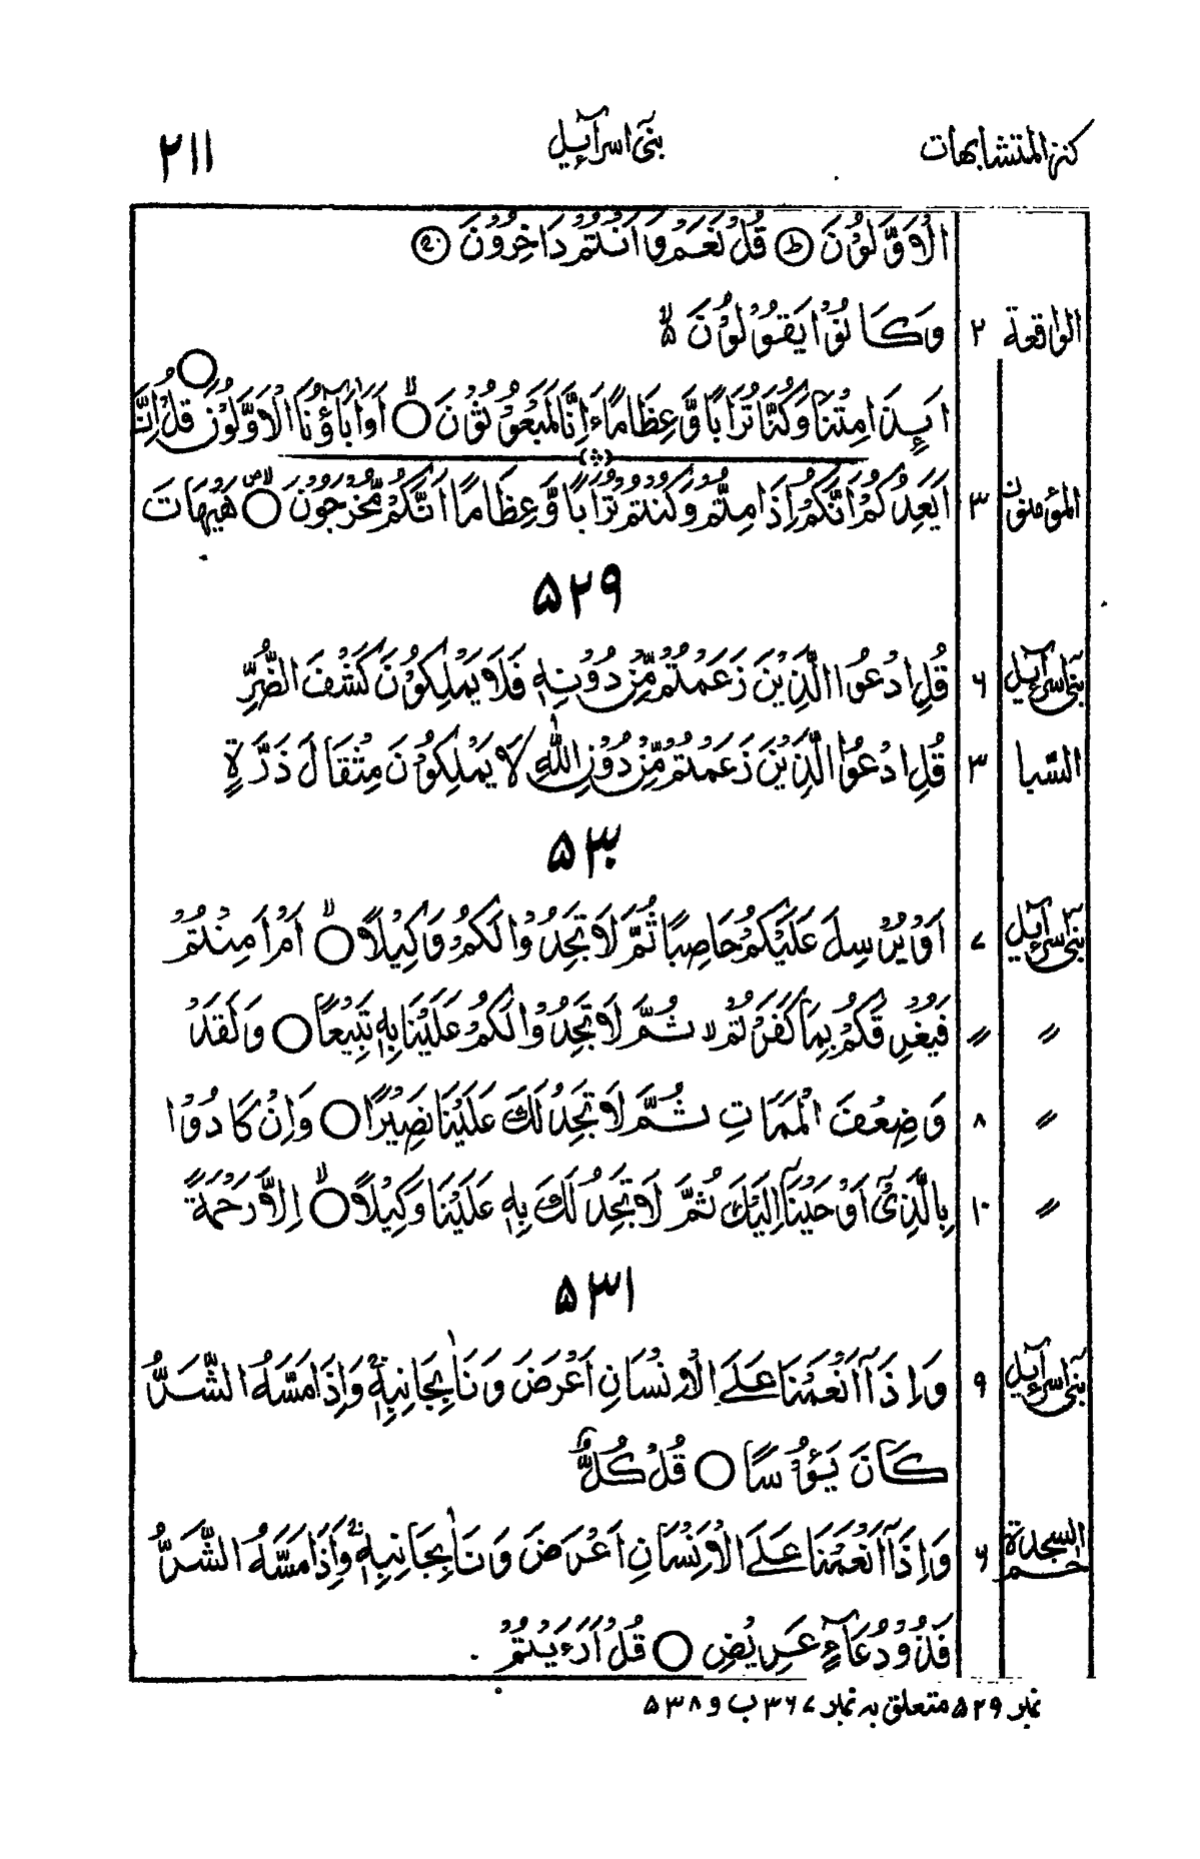 كنز المتشابهات بنیٓ اسرآءيل ٢١١
الْاَوَّلُوْنَ ۞ قُلْ نَعَمْ وَاَنْتُمْ دَاخِرُوْنَ
الواقعة ٢ وَكَانُوْا يَقُوْلُوْنَ ۙ
اَىِٕذَا مِتْنَا وَكُنَّا تُرَابًا وَّ عِظَامًا ءَاِنَّا لَمَبْعُوْثُوْنَ ○ اَوَاٰبَآؤُنَا الْاَوَّلُوْنَ ○ قُلْ اِنَّ
المؤمنون ٣ اَيَعِدُكُمْ اَنَّكُمْ اِذَا مِتُّمْ وَكُنْتُمْ تُرَابًا وَّعِظَامًا اَنَّكُمْ مُّخْرَجُوْنَ ○ هَيْهَاتَ
۵۲۹
بنیٓ اسرآءيل ۶ قُلِ ادْعُوا الَّذِيْنَ زَعَمْتُمْ مِّنْ دُوْنِهٖ فَلَا يَمْلِكُوْنَ كَشْفَ الضُّرِّ
السّبا ٣ قُلِ ادْعُوا الَّذِيْنَ زَعَمْتُمْ مِّنْ دُوْنِ اللّٰهِ لَا يَمْلِكُوْنَ مِثْقَالَ ذَرَّةٍ
۵۳۰
بنیٓ اسرآءيل ۷ اَوْ يُرْسِلَ عَلَيْكُمْ حَاصِبًا ثُمَّ لَا تَجِدُوْا لَكُمْ وَكِيْلًا ○ اَمْ اَمِنْتُمْ
〃 〃 فَيُغْرِقَكُمْ بِمَا كَفَرْتُمْ ۙ ثُمَّ لَا تَجِدُوْا لَكُمْ عَلَيْنَا بِهٖ تَبِيْعًا ○ وَلَقَدْ
〃 ۸ وَضِعْفَ الْمَمَاتِ ثُمَّ لَا تَجِدُ لَكَ عَلَيْنَا نَصِيْرًا ○ وَاِنْ كَادُوْا
〃 ۱۰ بِالَّذِىْٓ اَوْحَيْنَآ اِلَيْكَ ثُمَّ لَا تَجِدُ لَكَ بِهٖ عَلَيْنَا وَكِيْلًا ○ اِلَّا رَحْمَةً
۵۳۱
بنیٓ اسرآءيل ۹ وَاِذَآ اَنْعَمْنَا عَلَى الْاِنْسَانِ اَعْرَضَ وَنَاٰ بِجَانِبِهٖ ۚ وَاِذَا مَسَّهُ الشَّرُّ
كَانَ يَـُٔوْسًا ○ قُلْ كُلٌّ
حٰمٓ السجدة ۶ وَاِذَآ اَنْعَمْنَا عَلَى الْاِنْسَانِ اَعْرَضَ وَنَاٰ بِجَانِبِهٖ ۚ وَاِذَا مَسَّهُ الشَّرُّ
فَذُوْ دُعَآءٍ عَرِيْضٍ ○ قُلْ اَرَءَيْتُمْ
نمبر ۵۲۹ متعلق بہ نمبر ۳۶۷ ب و ۵۳۸